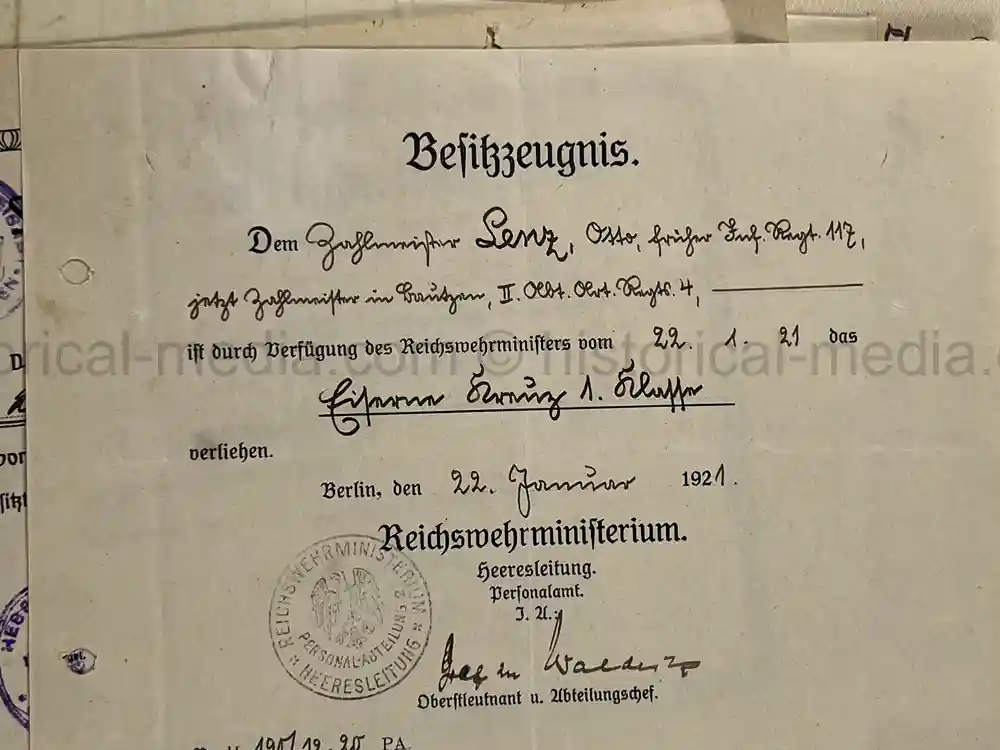 Besitzzeugnis.
Dem Zahlmeister Lenz, Otto, früher Inf. Regt. 117,
jetzt Zahlmeister in Bautzen, II. Abt. Art. Regts. 4,
historical-media.com © historical-media.
ist durch Verfügung des Reichswehrministers vom 22. 1. 21 das
Eiserne Kreuz 1. Klasse
verliehen.
Berlin, den 22. Januar 1921.
Reichswehrministerium.
Heeresleitung.
Personalamt.
I. A.:
REICHSWEHRMINISTERIUM
PERSONAL-ABTEILUNG 2
HEERESLEITUNG
Graf
Oberstleutnant u. Abteilungschef.
PA.